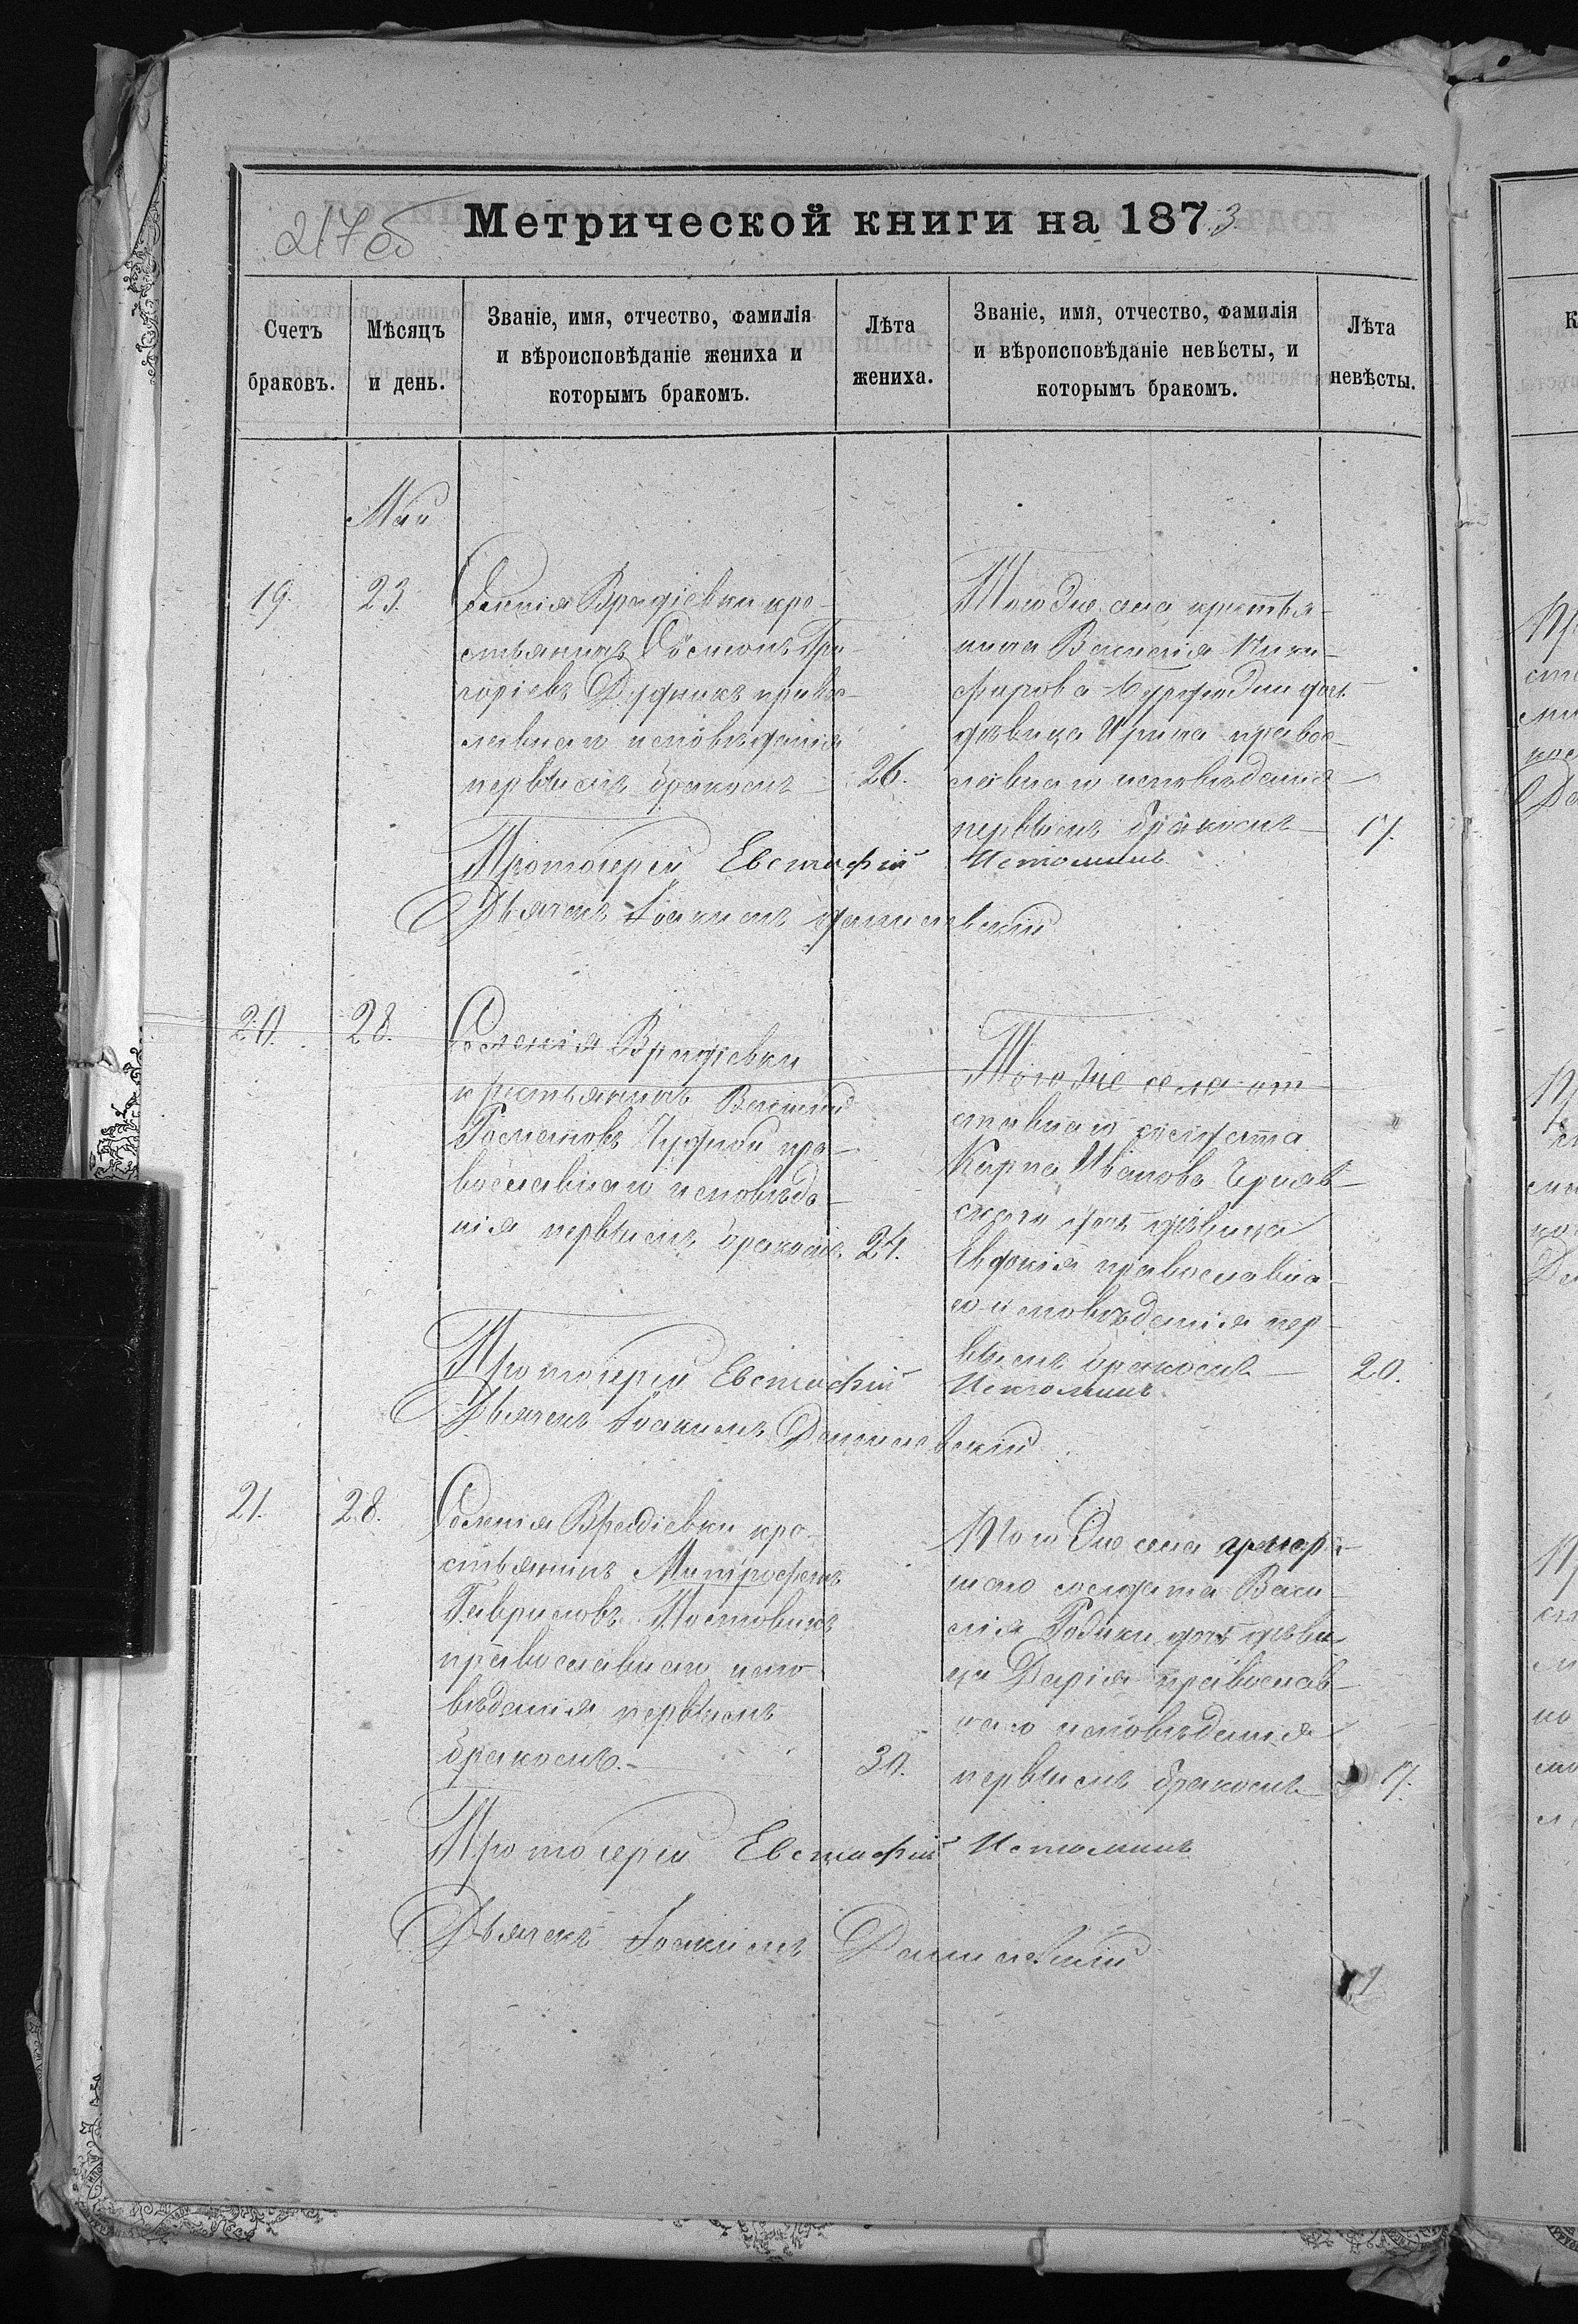 217 об
Метрической книги на 1873
Счетъ браковъ.
Мѣсяцъ и день.
Званіе, имя, отчество, фамилія
и вѣроисповѣданіе жениха и
которымъ бракомъ.
Лѣта жениха.
Званіе, имя, отчество, фамилія
и вѣроисповѣданіе невѣсты, и
которымъ бракомъ.
Лѣта невѣсты.
Май
19.
23.
Селенія Врадіевки кре-
стьянинъ Гри-
горіевъ Дудникъ правос-
лавнаго исповѣданія
первымъ бракомъ
26.
Того же села крестья-
нина Василія Ники-
форова дочь
дѣвица Ирина правос-
лавнаго исповѣданія
первымъ бракомъ
17.
Протоіерей Евстафій Истоминъ
Дьячекъ Іоакимъ Данилевскій
20.
28.
Селенія Врадіевки
крестьянинъ Василій
Романовъ Чудной пра-
вославнаго исповѣда-
нія первымъ бракомъ
24.
Того же села от-
ставнаго солдата
Карпа Иванова Черняв-
скаго дочь дѣвица
Евдокія православна-
го исповѣданія пер-
вымъ бракомъ
20.
Протоіерей Евстафій Истоминъ
Дьячекъ Іоакимъ Данилевскій
21.
28.
Селенія Врадіевки кре-
стьянинъ Митрофанъ
Гавриловъ Мостовикъ
православнаго испо-
вѣданія первымъ
бракомъ.
30.
Того же села
солдата Васи-
лія Родики дочь дѣви-
ца Дарія православ-
наго исповѣданія
первымъ бракомъ
17.
Протоіерей Евстафій Истоминъ
Дьячекъ Іоакимъ Данилевскій